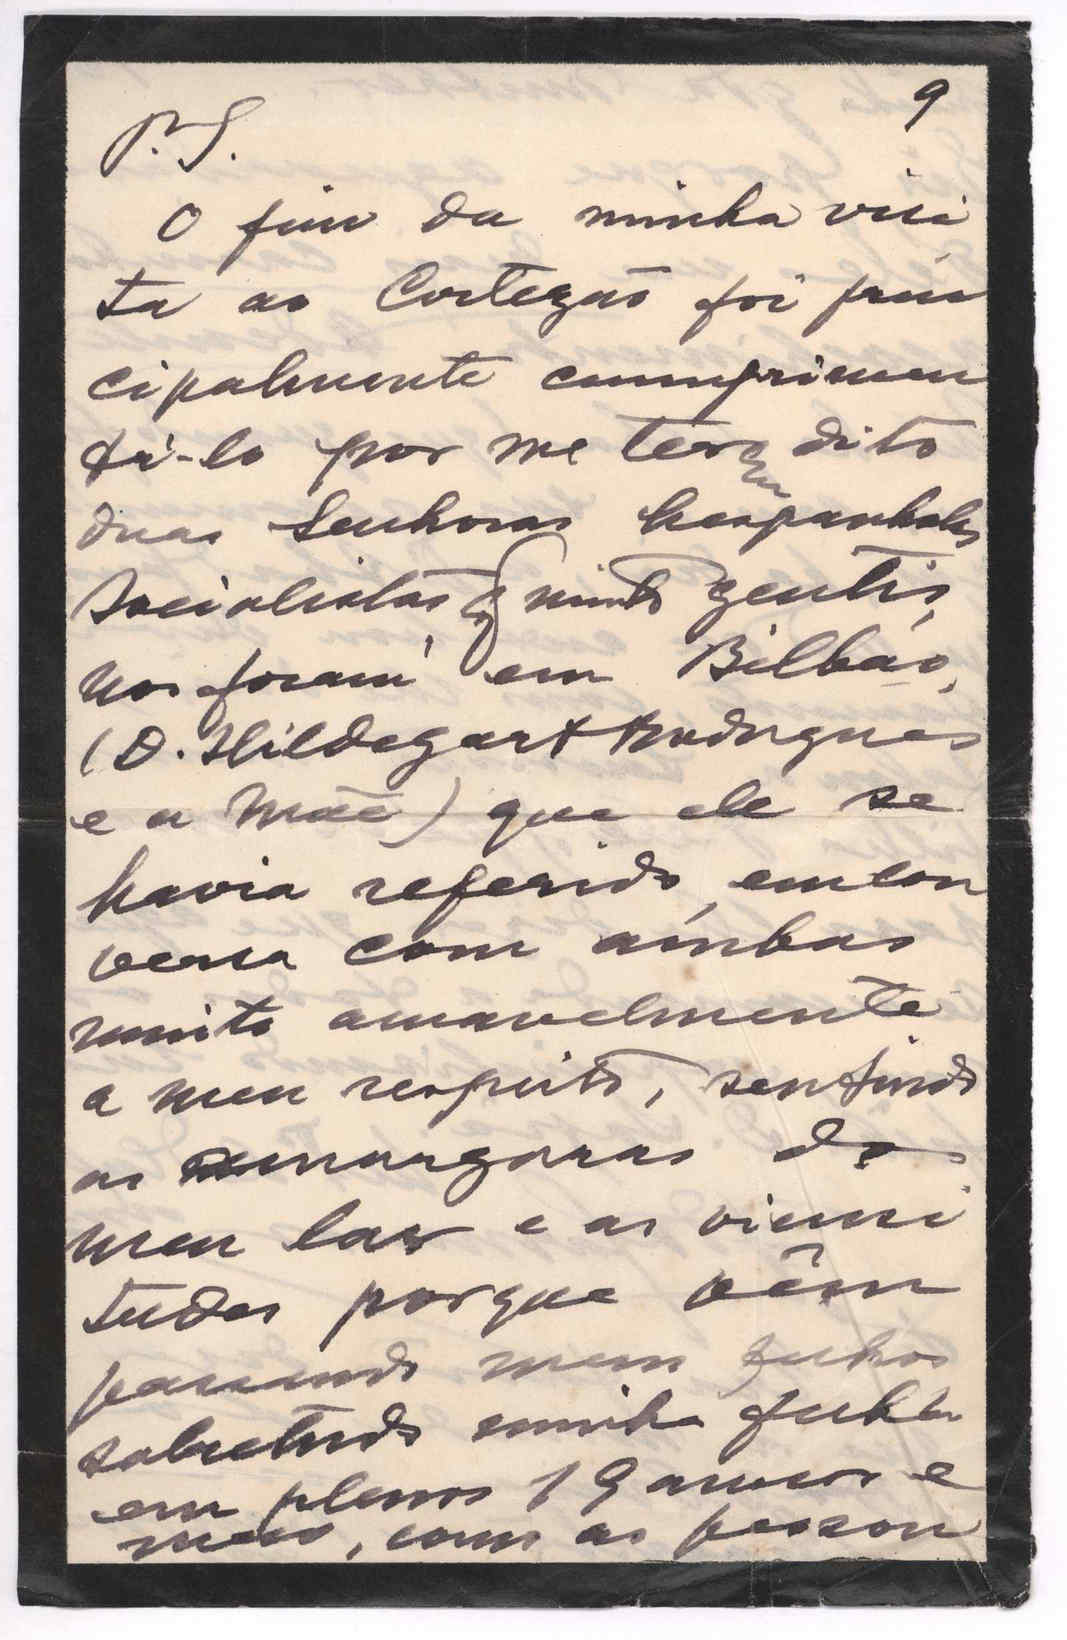 9
P.S.
O fim da minha visi
ta ao Cortezão foi prin
cipalmente cumprimen
tá-lo por me terem dito
duas Senhoras hespanholas
socialistas, q muito gentis,
nos foram em Bilbáo,
(D. Hildegart Rodrigues
e a Mãe) que ele se
havia referido, em con
versa com ambas
muito amavelmente
a meu respeito, sentindo
as amarguras do
meu lar e as vicissi
tudes porque vêm
passando meus filhos
sobretudo minha filha
em plenos 19 annos e
meio, como as pessoa